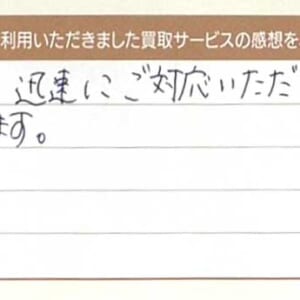 利用いただきました買取サービスの感想を
迅速にご対応いただ
ます。